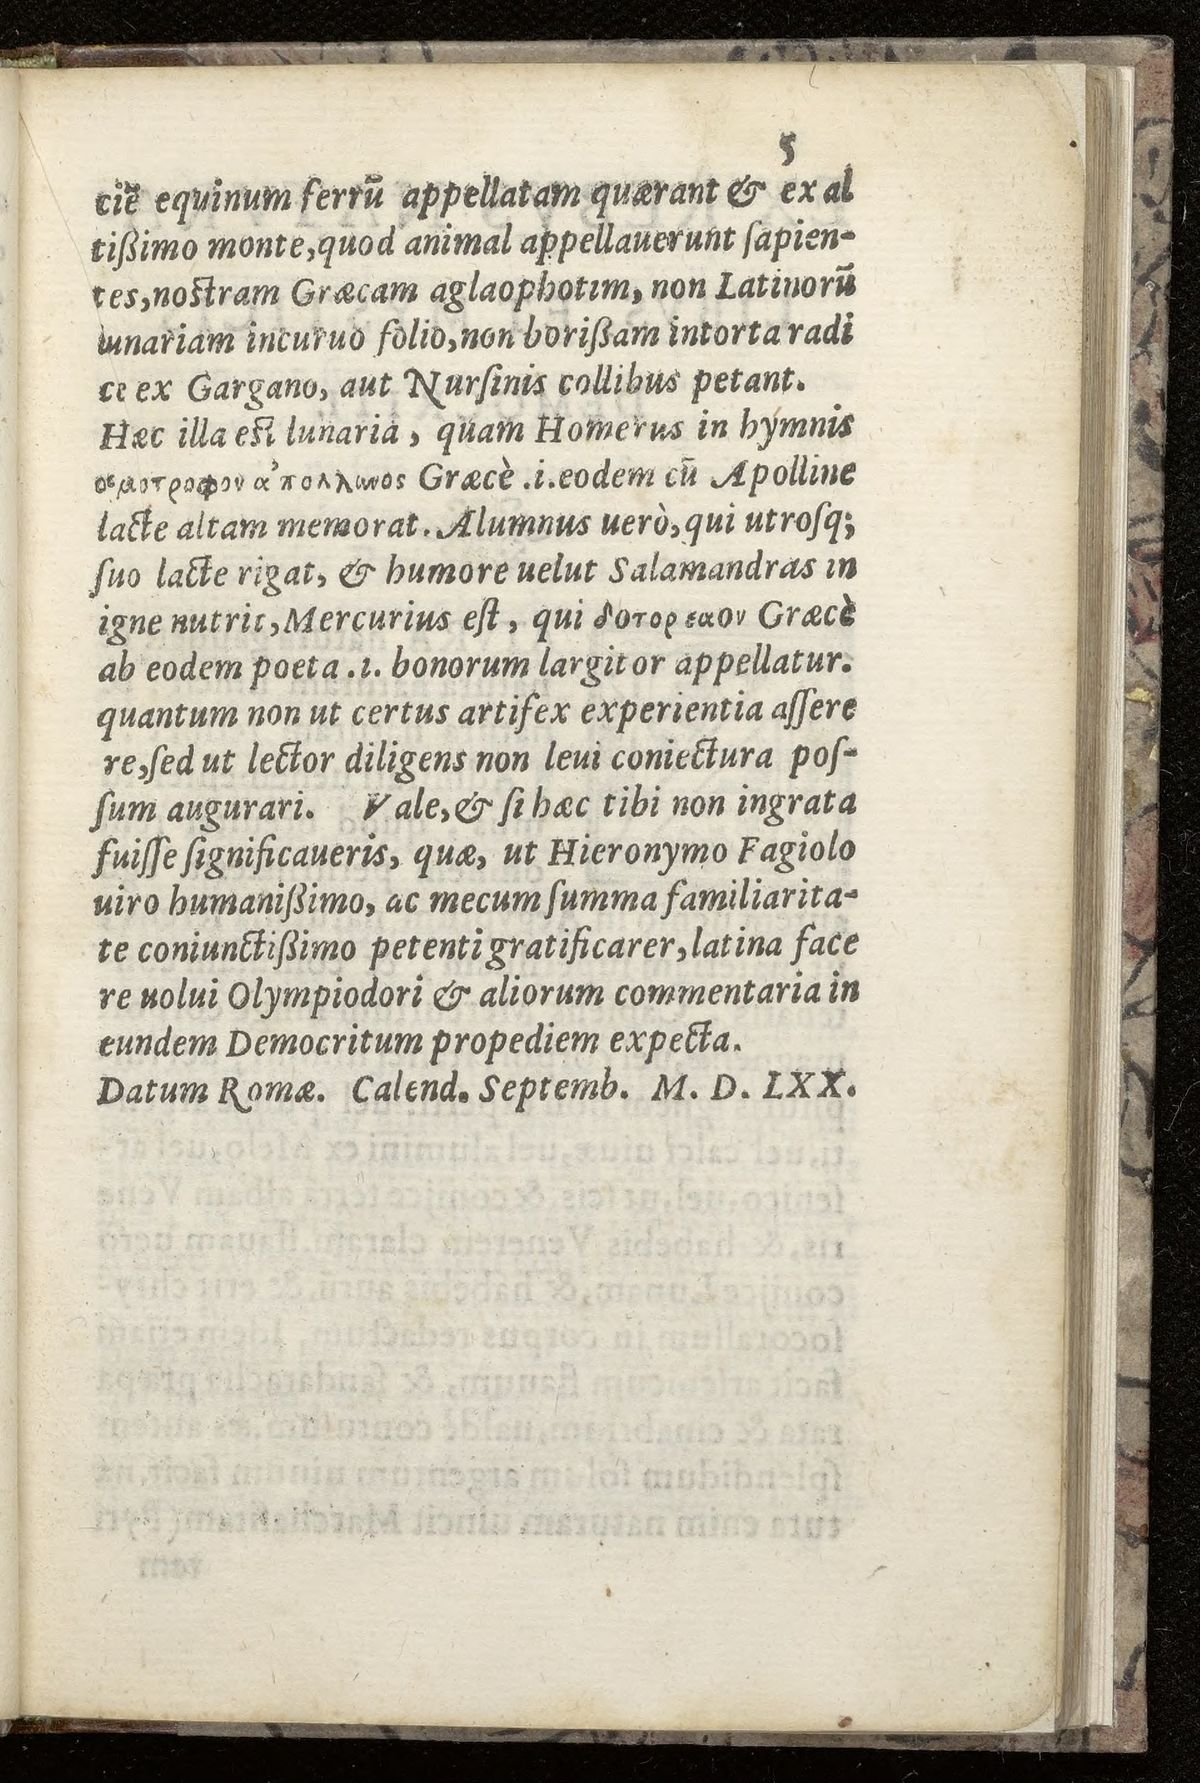 5
ciẽ equinum ferrũ appellatam quærant & ex al
tißimo monte,quod animal appellauerunt ſapien-
tes,noſtram Græcam aglaophotim, non Latinorũ
lunariam incuruo folio,non borißam intorta radi
ce ex Gargano, aut Nurſinis collibus petant.
Hæc illa eſt lunaria, quam Homerus in hymnis
ἀπολλωνος Græcè .i.eodem cũ Apolline
lacte altam memorat. Alumnus uerò,qui utroſq;
ſuo lacte rigat, & humore uelut Salamandras in
igne nutrit,Mercurius eſt, qui Græcè
ab eodem poeta .i. bonorum largitor appellatur.
quantum non ut certus artifex experientia aſſere
re,ſed ut lector diligens non leui coniectura poſ-
ſum augurari. Vale,& ſi hæc tibi non ingrata
fuiſſe ſignificaueris, quæ, ut Hieronymo Fagiolo
uiro humanißimo, ac mecum ſumma familiarita-
te coniunctißimo petenti gratificarer,latina face
re uolui Olympiodori & aliorum commentaria in
eundem Democritum propediem expecta.
Datum Romæ. Calend. Septemb. M. D. LXX.